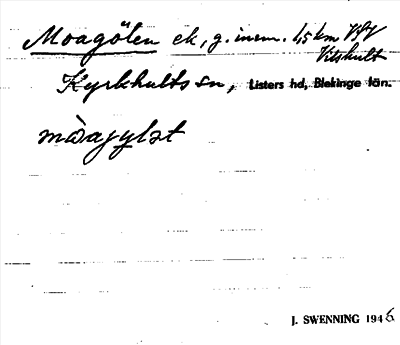 Moagölen ek, g. inom. 1,5 km VSV
Vilshult
Kyrkhults sn, Listers hd, Blekinge län.
J. SWENNING 1946